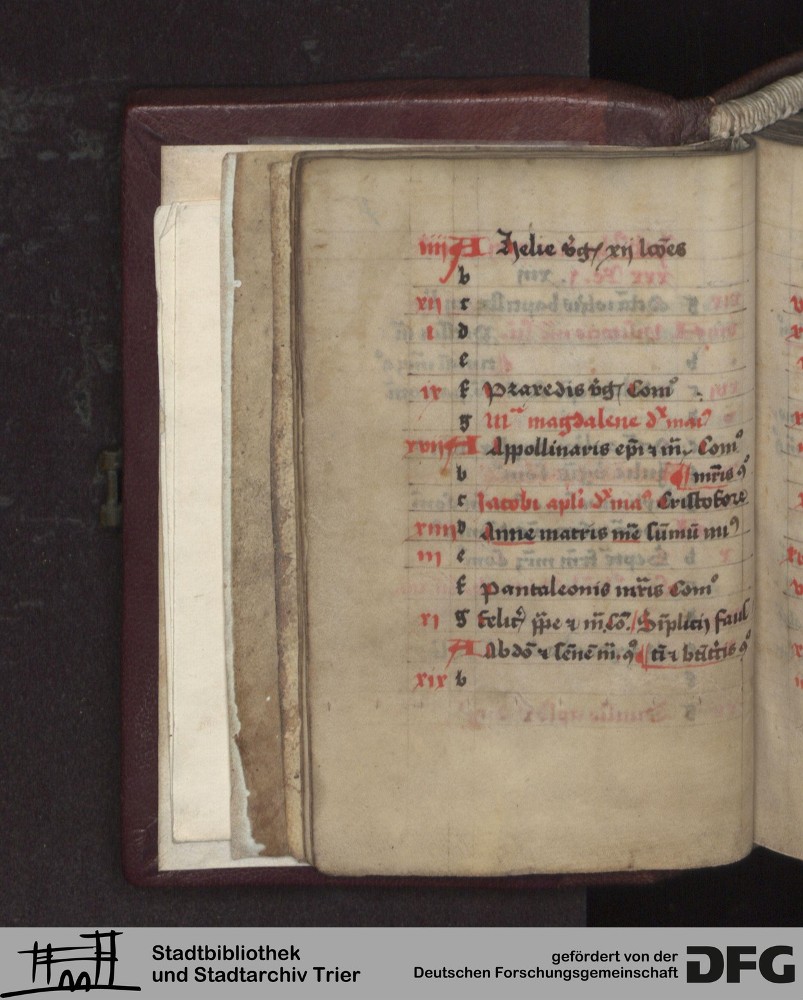 iiij A Zelie v̄g xij lc̄oēs
b
xij c
i d
e
ix f Praxedis v̄g Com̄
g magdalene dx mai9
xvij A Appollinaris ep̄i 7 m̄r Com9
b m̄ris 9
c Jacobi apl̄i dx ma9 Cristofore
xiiij d Anne matris m̄e sūmū mi9
iij e
f Pantaleonis m̄ris Com9
xi g felic 7 m̄ Cō Simplicij faus
A Abdō 7 senē m̄ 9 7 bt̄icis 9
xix b
Stadtbibliothek
und Stadtarchiv Trier
gefördert von der
Deutschen Forschungsgemeinschaft
DFG